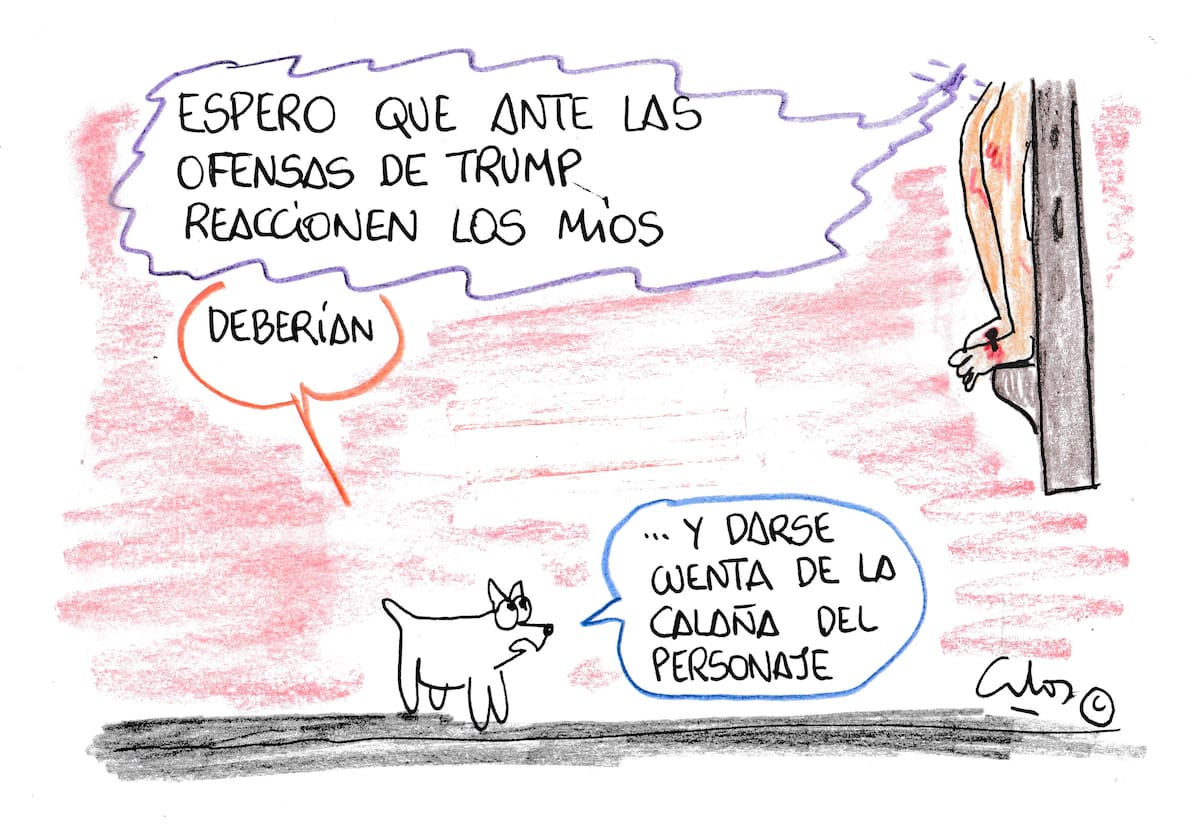 ESPERO QUE ANTE LAS
OFENSAS DE TRUMP
REACCIONEN LOS MíOS
DEBERíAN
... Y DARSE
CUENTA DE LA
CALAÑA DEL
PERSONAJE
©